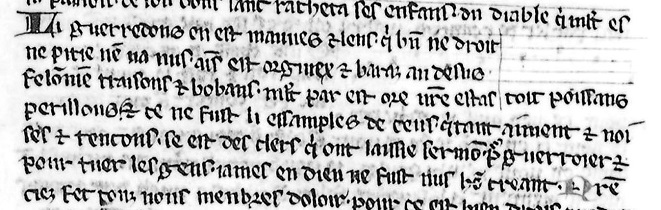 de son sanc racheta ses enfans du diable q̇ mlt es
Li guerredons en est mauues ⁊ lens· q̇ bn̄ ne droit
ne pitie nē ua nus· ains est orguiex ⁊ baraz an desus·
felonnie traisons ⁊ bobans· mlt par est ore nr̄e estas tout poissans
perillous· ⁊ ce ne fust li essamples de ceus q̇ tant aiment ⁊ noi
ses ⁊ tencons· se est des clers q̇ ont laissie sermōs pʳ guerroier ⁊
pour tuer les gens· iames en dieu ne fust nus hō creant· Nr̄e
ciez fet touz nous menbres doloir· pour ce est bien